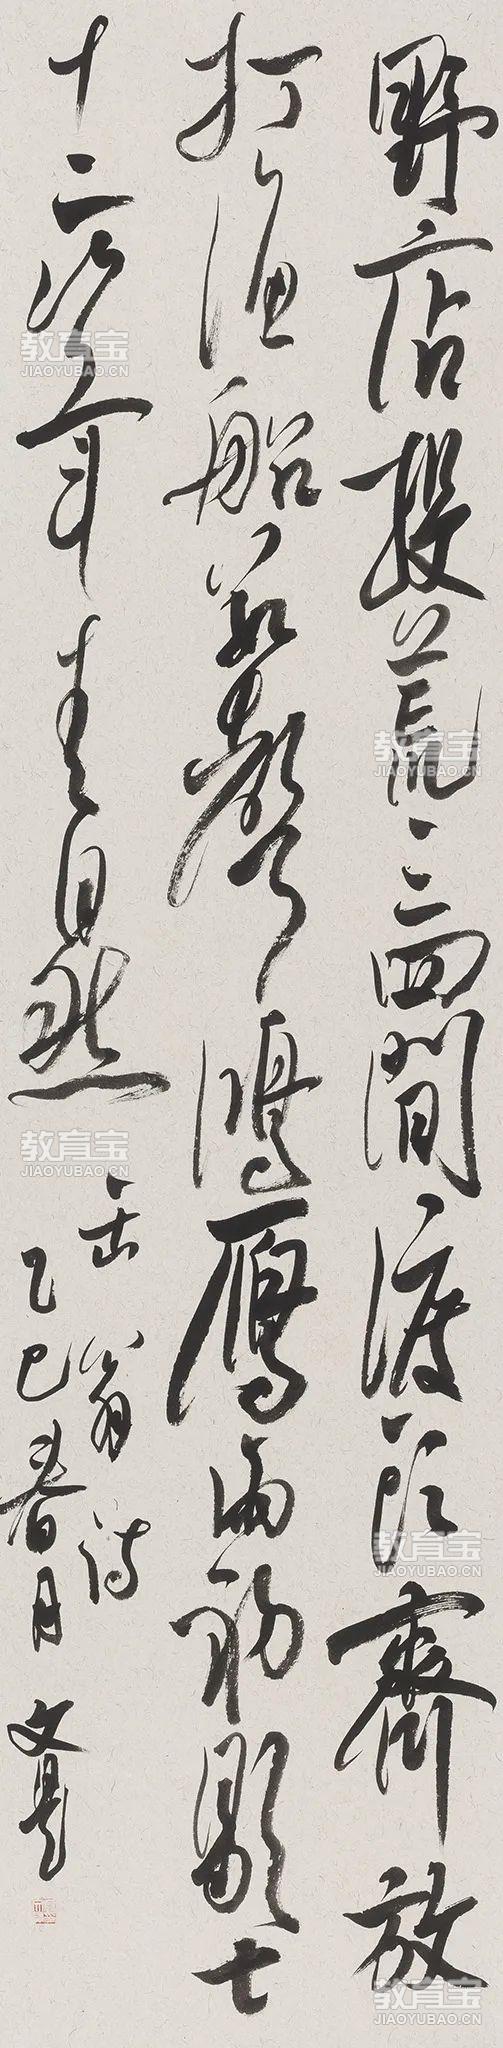 野店投荒三四間渡頭齊放
打漁船數聲鴻雁雨初歇七
十二峰青自然
缶翁詩
乙巳春月
教育宝
JIAOYUBAO.CN
教育宝
JIAOYUBAO.CN
教育宝
JIAOYUBAO.CN
教育宝
JIAOYUBAO.CN
教育宝
JIAOYUBAO.CN